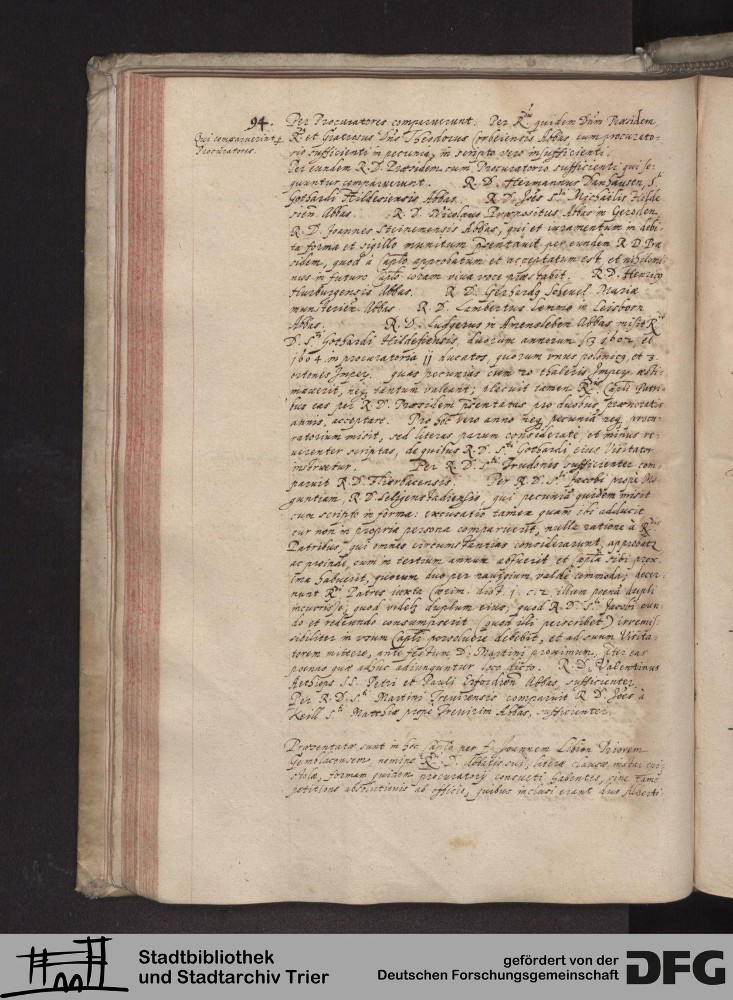 94.
Qui comparuerint p
Procuratores.
Per Procuratores comparuerunt. Per Rm quidem Dnm Præsidem
Rs et Gratiosus Dns Theodorus Corbeiensis Abbas, cum procurato-
rio sufficienti in pecunia, in scripto vero insufficienti.
Per eundem R. D. Præsidem cum Procuratorio sufficienti qui se-
quuntur comparuerunt. R. D. Hermannus Danhausen, Sti
Gothardi Hildesiensis Abbas. R. D. Joēs Sti Michaëlis Hilde
sien Abbas. R. D. Nicolaus Præpositus Abbas in Geroden.
R. D. Joannes Steinemensis Abbas, qui et iuramentum in debi-
ta forma et sigillo munitum pñtauit per eundem R. D. Præ
sidem, quod à Caplo approbatum et acceptatum est et nihilomi-
nus in futuro Caplo coram viua voce præstabit. R. D. Henricq
Hurburgensis Abbas. R. D. Gerhardq Scheuel Mariæ
munsterien Abbas. R. D. Lambertus in Leisborn
Abbas. R. D. Ludgerus in Amensleben Abbas, misit Rdo
D. Sti Gothardi Hildesiensis, duorum annorum 1602 et
1604. in procuratoria 11 ducatos, quorum vnus polonicq et 3.
ortones Imper. quas pecunias cum 20 thaleris Imper. æsti-
mauerit, neq tantum valeant; placuit tamen Rdis Capli Patri-
bus eas per R. D. Præsidem pñtatas pro duobus prænotatis
annis, acceptare. Pro hoc vero anno neq pecuniā neq procu-
ratorium misit, sed literas parum consideratè et minus re-
uerenter scriptas, de quibus R. D. Sti Gothardi eius Visitator
instruetur. Per R. D. Sti Trudonis sufficienter com-
paruit R. D. Florbacensis. Per R. D. Sti Jacobi propè Mo
guntiam, R. D. Selgenstadiensis, qui pecuniā quidem misit
cum scripto in forma: excusatio tamen quam ibi adducit
cur non in propria persona comparuerit, nulla ratione à Rdis
Patribus, qui omnes circumstantias considerarunt, approbatr
ac proinde, cum in tertium annum abfuerit et Capla sibi prox-
ima habuerit, quorum duo per nauigium valde commoda; decer-
nunt Rdi Patres iuxta Cærim. dist. 1. c. 2 illum poenā dupli
incurrisse; quod videlt duplum eius, quod R. D. Sti Jacobi eun-
do et redeundo consumpserit (quod illi perscribet) irremis-
sibiliter in vsum Capli persoluere debebit, et ad suum Visita-
torem mittere, ante festum D. Martini proximum, præter eas
poenas quæ adhuc adiunguntur loco dicto. R. D. Valentinus
Aethiops SS. Petri et Pauli Erfordien Abbas, sufficienter.
Per R. D. Sti Martini Treuirensis comparuit R. D. Joēs à
Keill Sti Matthiæ prope Treuirim Abbas, sufficienter.
Præsentatæ sunt in hoc Caplo per f. Joannem Priorem
Gemblacensem, nomine Rdi D. Abbatis sui, literæ clausæ, instar epi-
stolæ, formam quidem procuratorij consueti habentes, sine tamē
petitione absolutionis ab officio, quibus inclusi erant duo Alberti
Stadtbibliothek
und Stadtarchiv Trier
gefördert von der
Deutschen Forschungsgemeinschaft
DFG